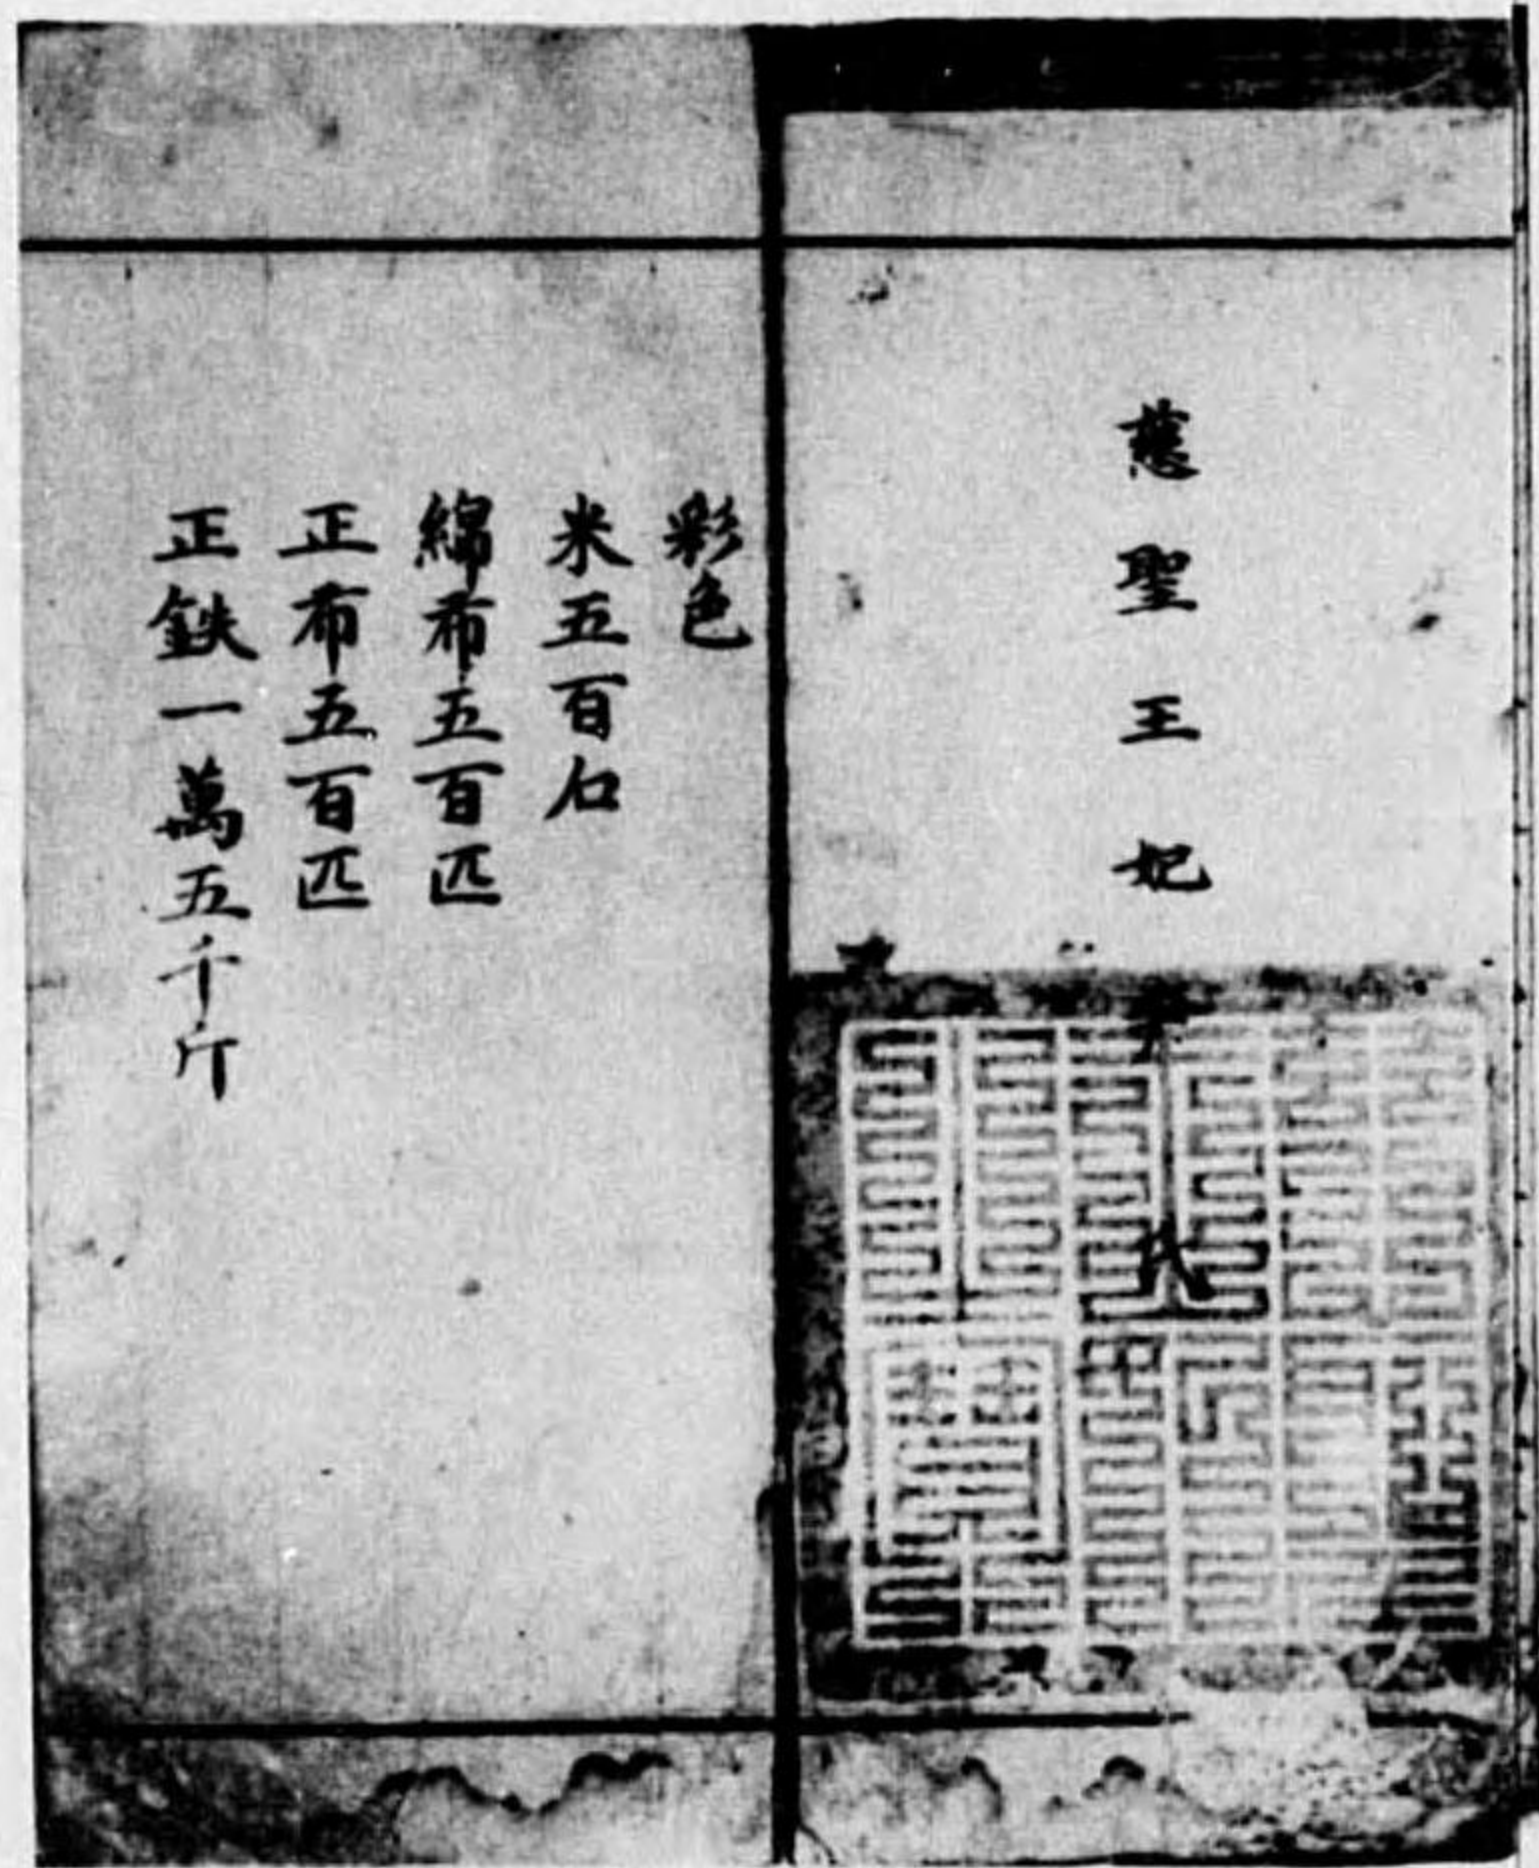 慈聖王妃尹氏
彩色
米五百石
綿布五百匹
正布五百匹
正鉄一萬五千斤